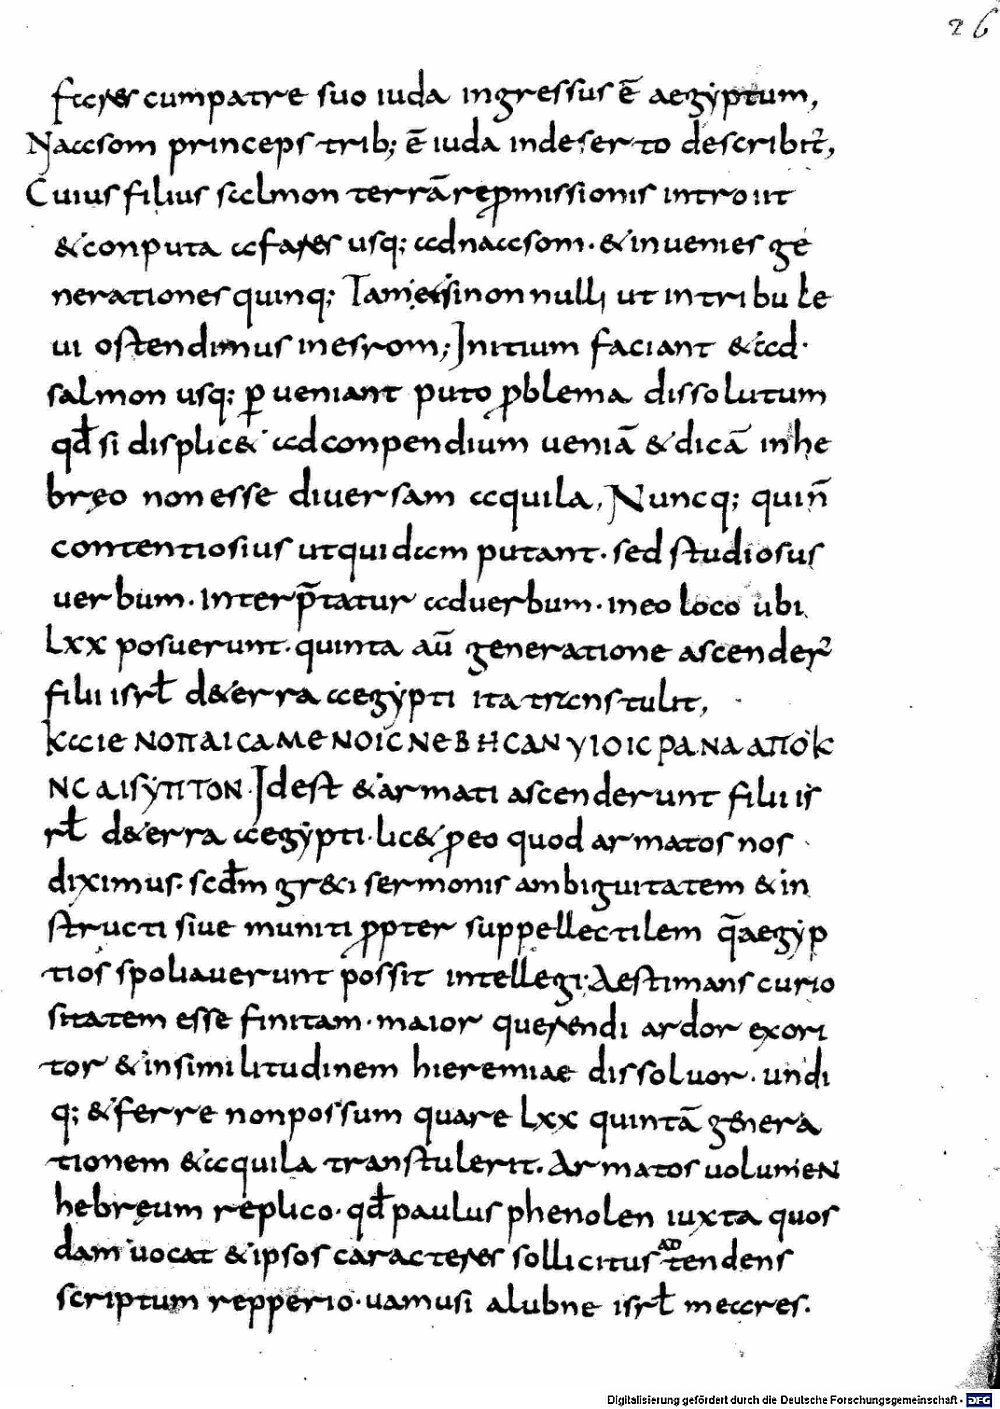 26
fares cumpatre suo iuda ingressus ē aegyptum,
Naasom princeps trib; ē iuda indeserto describit̄,
Cuius filius salmon terrā repmissionis introiit
&conputa afares usq; adnaasom. &inuenies ge
nerationes quinq; Tam nonnulli ut intribu le
ui ostendimus inesrom; Initium faciant &ad.
salmon usq; ꝑueniant puto ꝓblema dissolutum
qd̄ si displic& adconpendium ueniā &dicā inhe
breo nonesse diuersam aquila, Nuncq; quin̄
contentiosius utquidam putant. sed studiosus
uerbum. interp̄tatur aduerbum. ineo loco ubi
Lxx posuerunt. quinta aū generatione ascender̄
filii isrł d&erra aegypti ita transtulit,
ΚΑΙΕ ΝΟΠΛΙCΑΜΕΝΟΙC ΝΕΒΗCΑΝ ΥΙΟΙC ΡΑΝΑ ΑΠΟΚ
ΝC ΑΙSΥΠΤΟΝ. Idest &armati ascenderunt filii is
rł d&erra aegypti. lic& ꝓeo quod armatos nos
diximus. scd̄m gr&ci sermonis ambiguitatem &in
structi siue muniti ꝓpter suppellectilem q̄aegyp
tios spoliauerunt possit intellegi. Aestimans curio
sitatem esse finitam. maior querendi ardor exori
tor &insimilitudinem hieremiae dissoluor. undi
q; &ferre nonpossum quare Lxx quintā genera
tionem &aquila transtulerit. Armatos uolumen
hebreum replico. qd̄ paulus phenolen iuxta quos
dam uocat &ipsos caracteres sollicitus adtendens
scriptum repperio. uamusi alubne isrł meares.
Digitalisierung gefördert durch die Deutsche Forschungsgemeinschaft - DFG